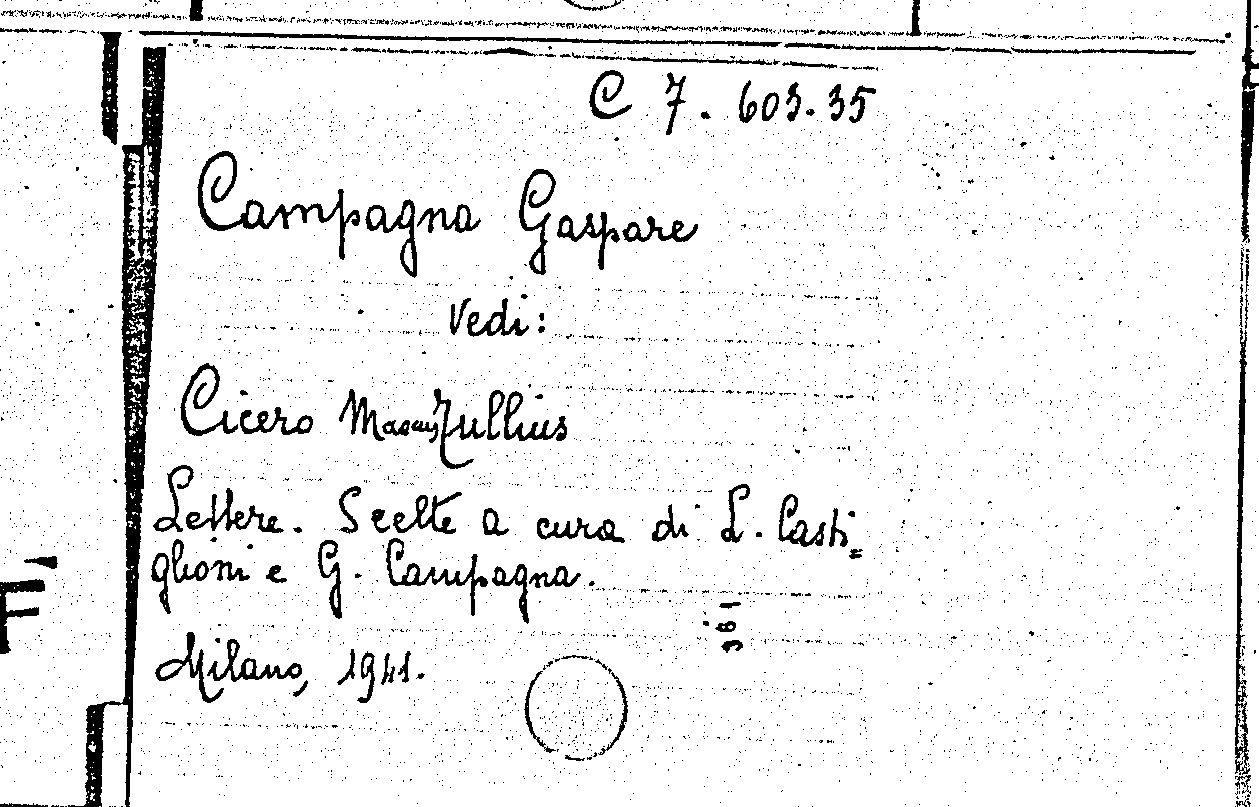 C 7. 603.35
Campagna Gaspare
Vedi:
Cicero Tullius
Lettere. Scelte a cura di L. Casti=
glioni e G. Campagna.
Milano, 1941.